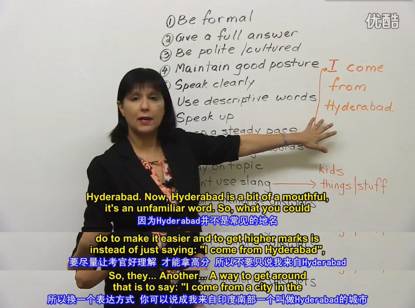 优酷
① Be formal
② Give a full answer
③ Be polite/cultured
④ Maintain good posture
Speak clearly
Use descriptive words
Speak up
a steady pace
on topic
use slang → things/stuff
kids
I come
from
Hyderabad.
Hyderabad. Now, Hyderabad is a bit of a mouthful,
it's an unfamiliar word. So, what you could
因为Hyderabad并不是常见的地名
do to make it easier and to get higher marks is
instead of just saying: "I come from Hyderabad",
要尽量让考官好理解 才能拿高分 所以不要只说我来自Hyderabad
So, they... Another... A way to get around
that is to say: "I come from a city in the
所以换一个表达方式 你可以说成我来自印度南部一个叫做Hyderabad的城市